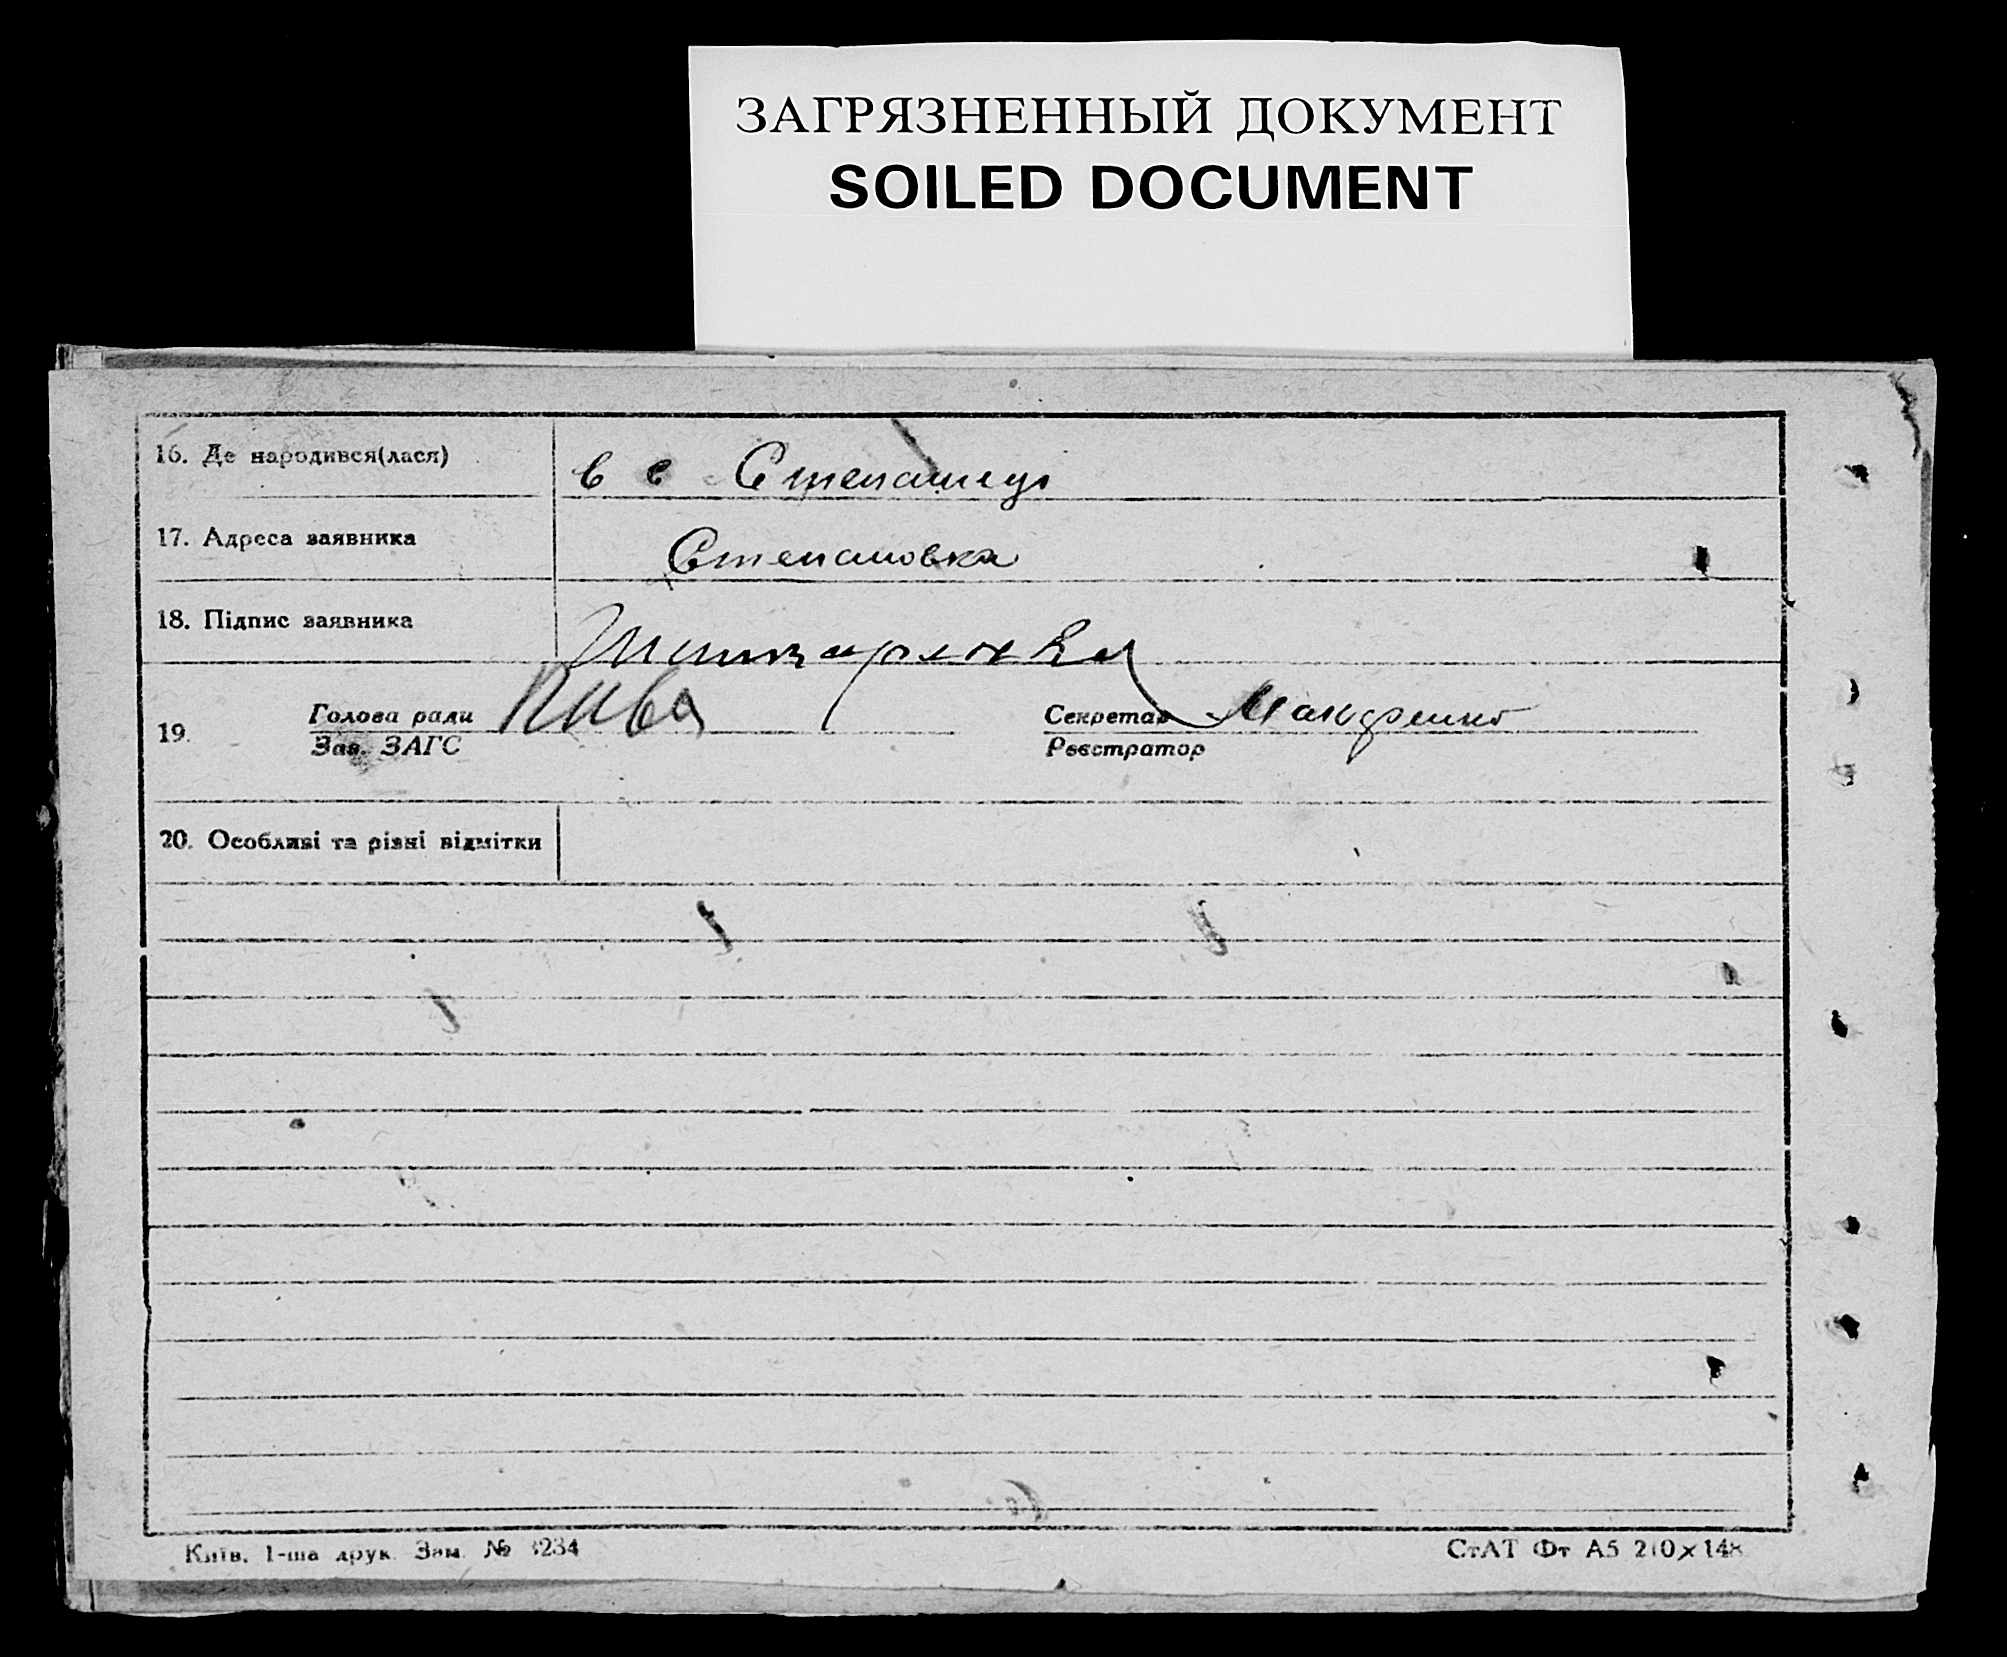 ЗАГРЯЗНЕННЫЙ ДОКУМЕНТ
SOILED DOCUMENT
16. Де народився(лася) в с Степашці
17. Адреса заявника Степановка
18. Підпис заявника
19. Голова ради Кива Секретар
Зав. ЗАГС Реєстратор
20. Особливі та різні відмітки
Київ. 1-ша друк. Зам. № 3234 СтАТ Фт А5 210×148